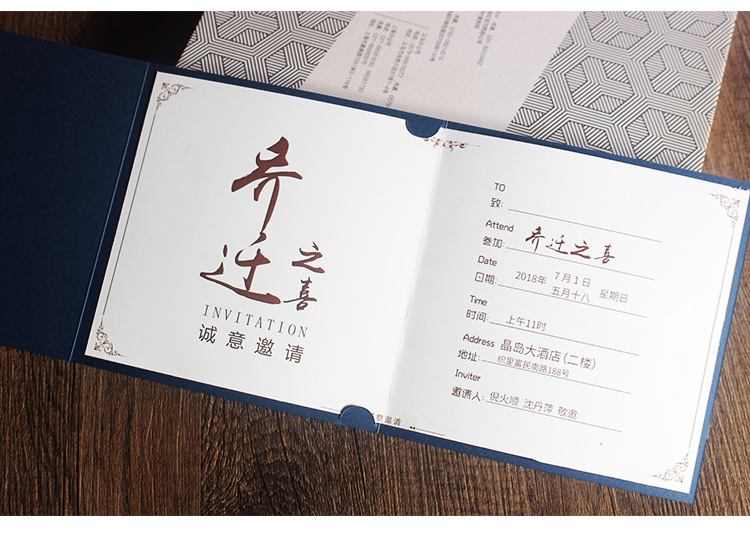 乔迁
之喜
INVITATION
诚意邀请
TO
致:
Attend
参加: 乔迁之喜
Date
日期: 2018年 7月1日 星期日
五月十八
Time
时间: 上午11时
Address 晶岛大酒店(二楼)
地址: 织里富民南路188号
Inviter
邀请人: 倪火顺 沈丹萍 敬邀
意邀请